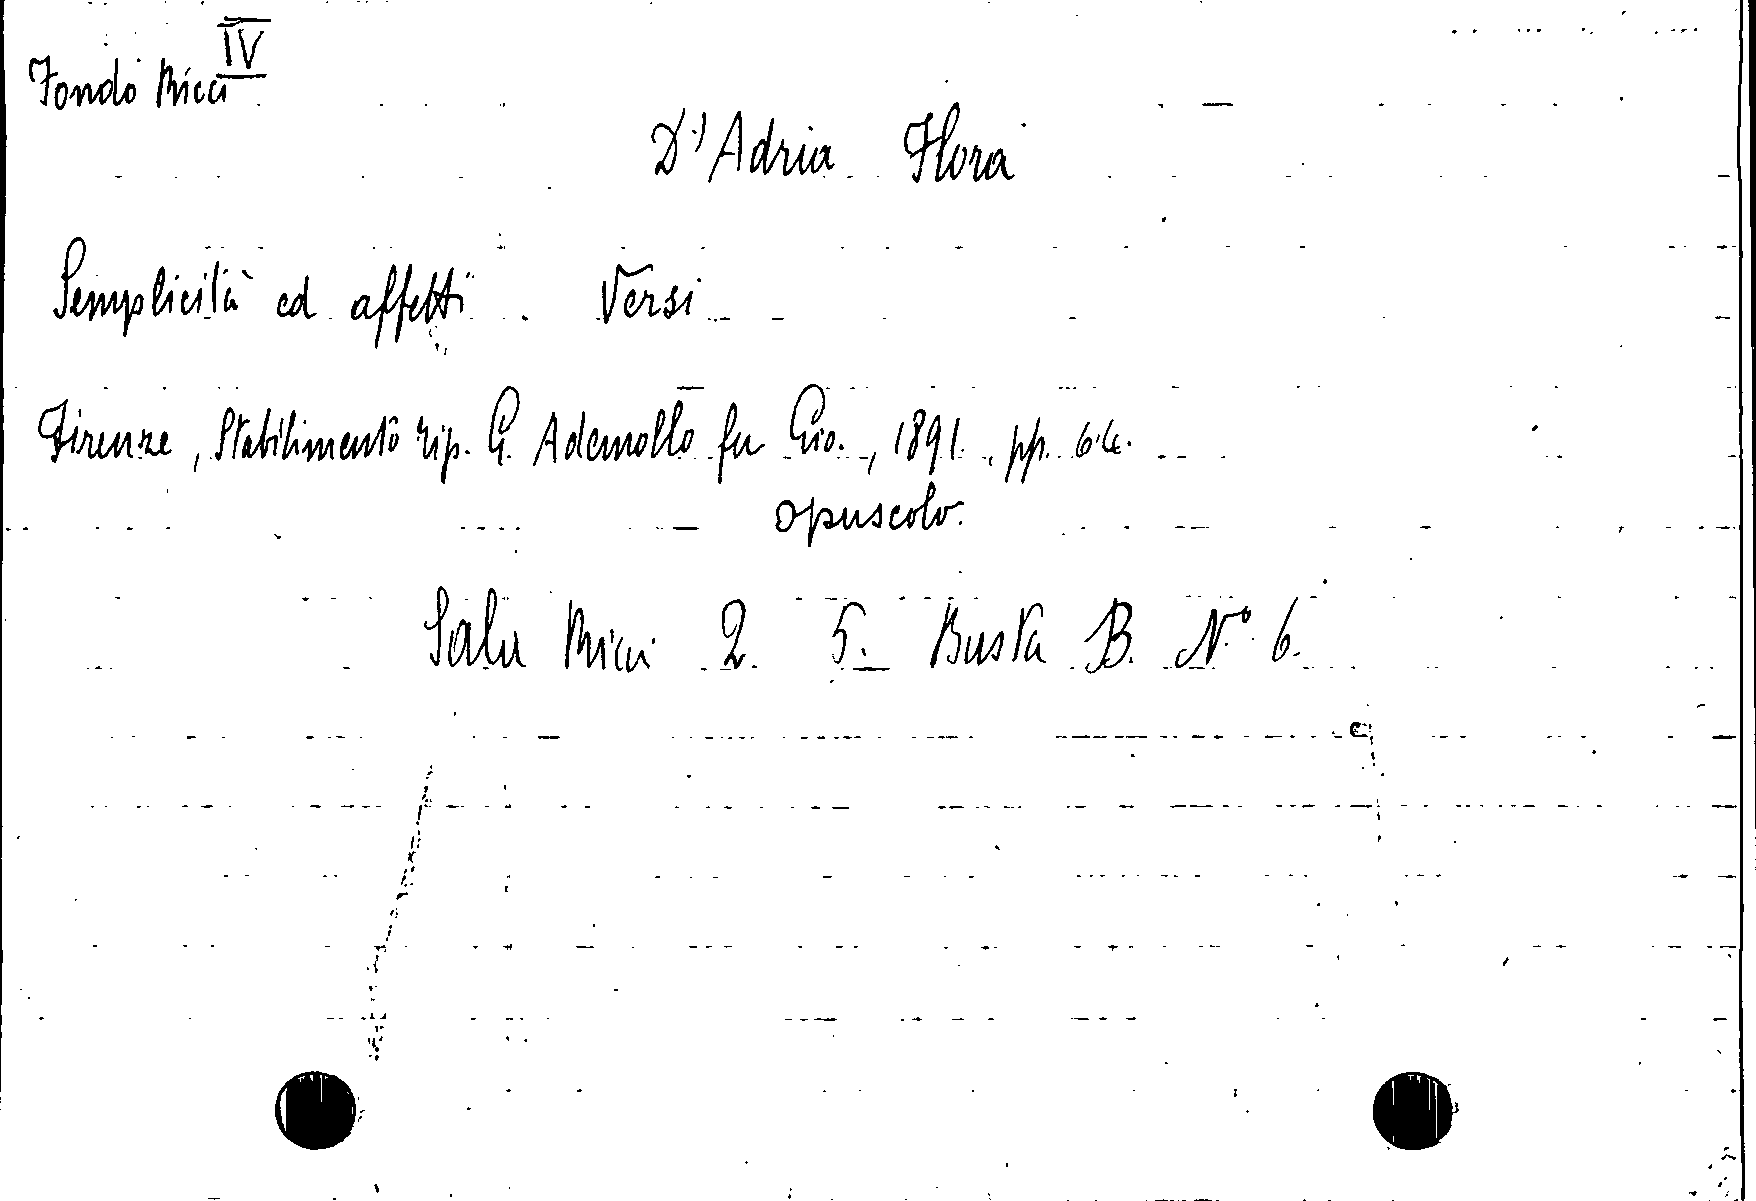 IV
Fondo Ricci
D'Adria Flora
Semplicità ed affetti. Versi
Firenze, Stabilimento Tip. G. Ademollo fu Gio., 1891., pp. 64.
opuscolo.
Sala Ricci 2. 5. Busta B. N.° 6.